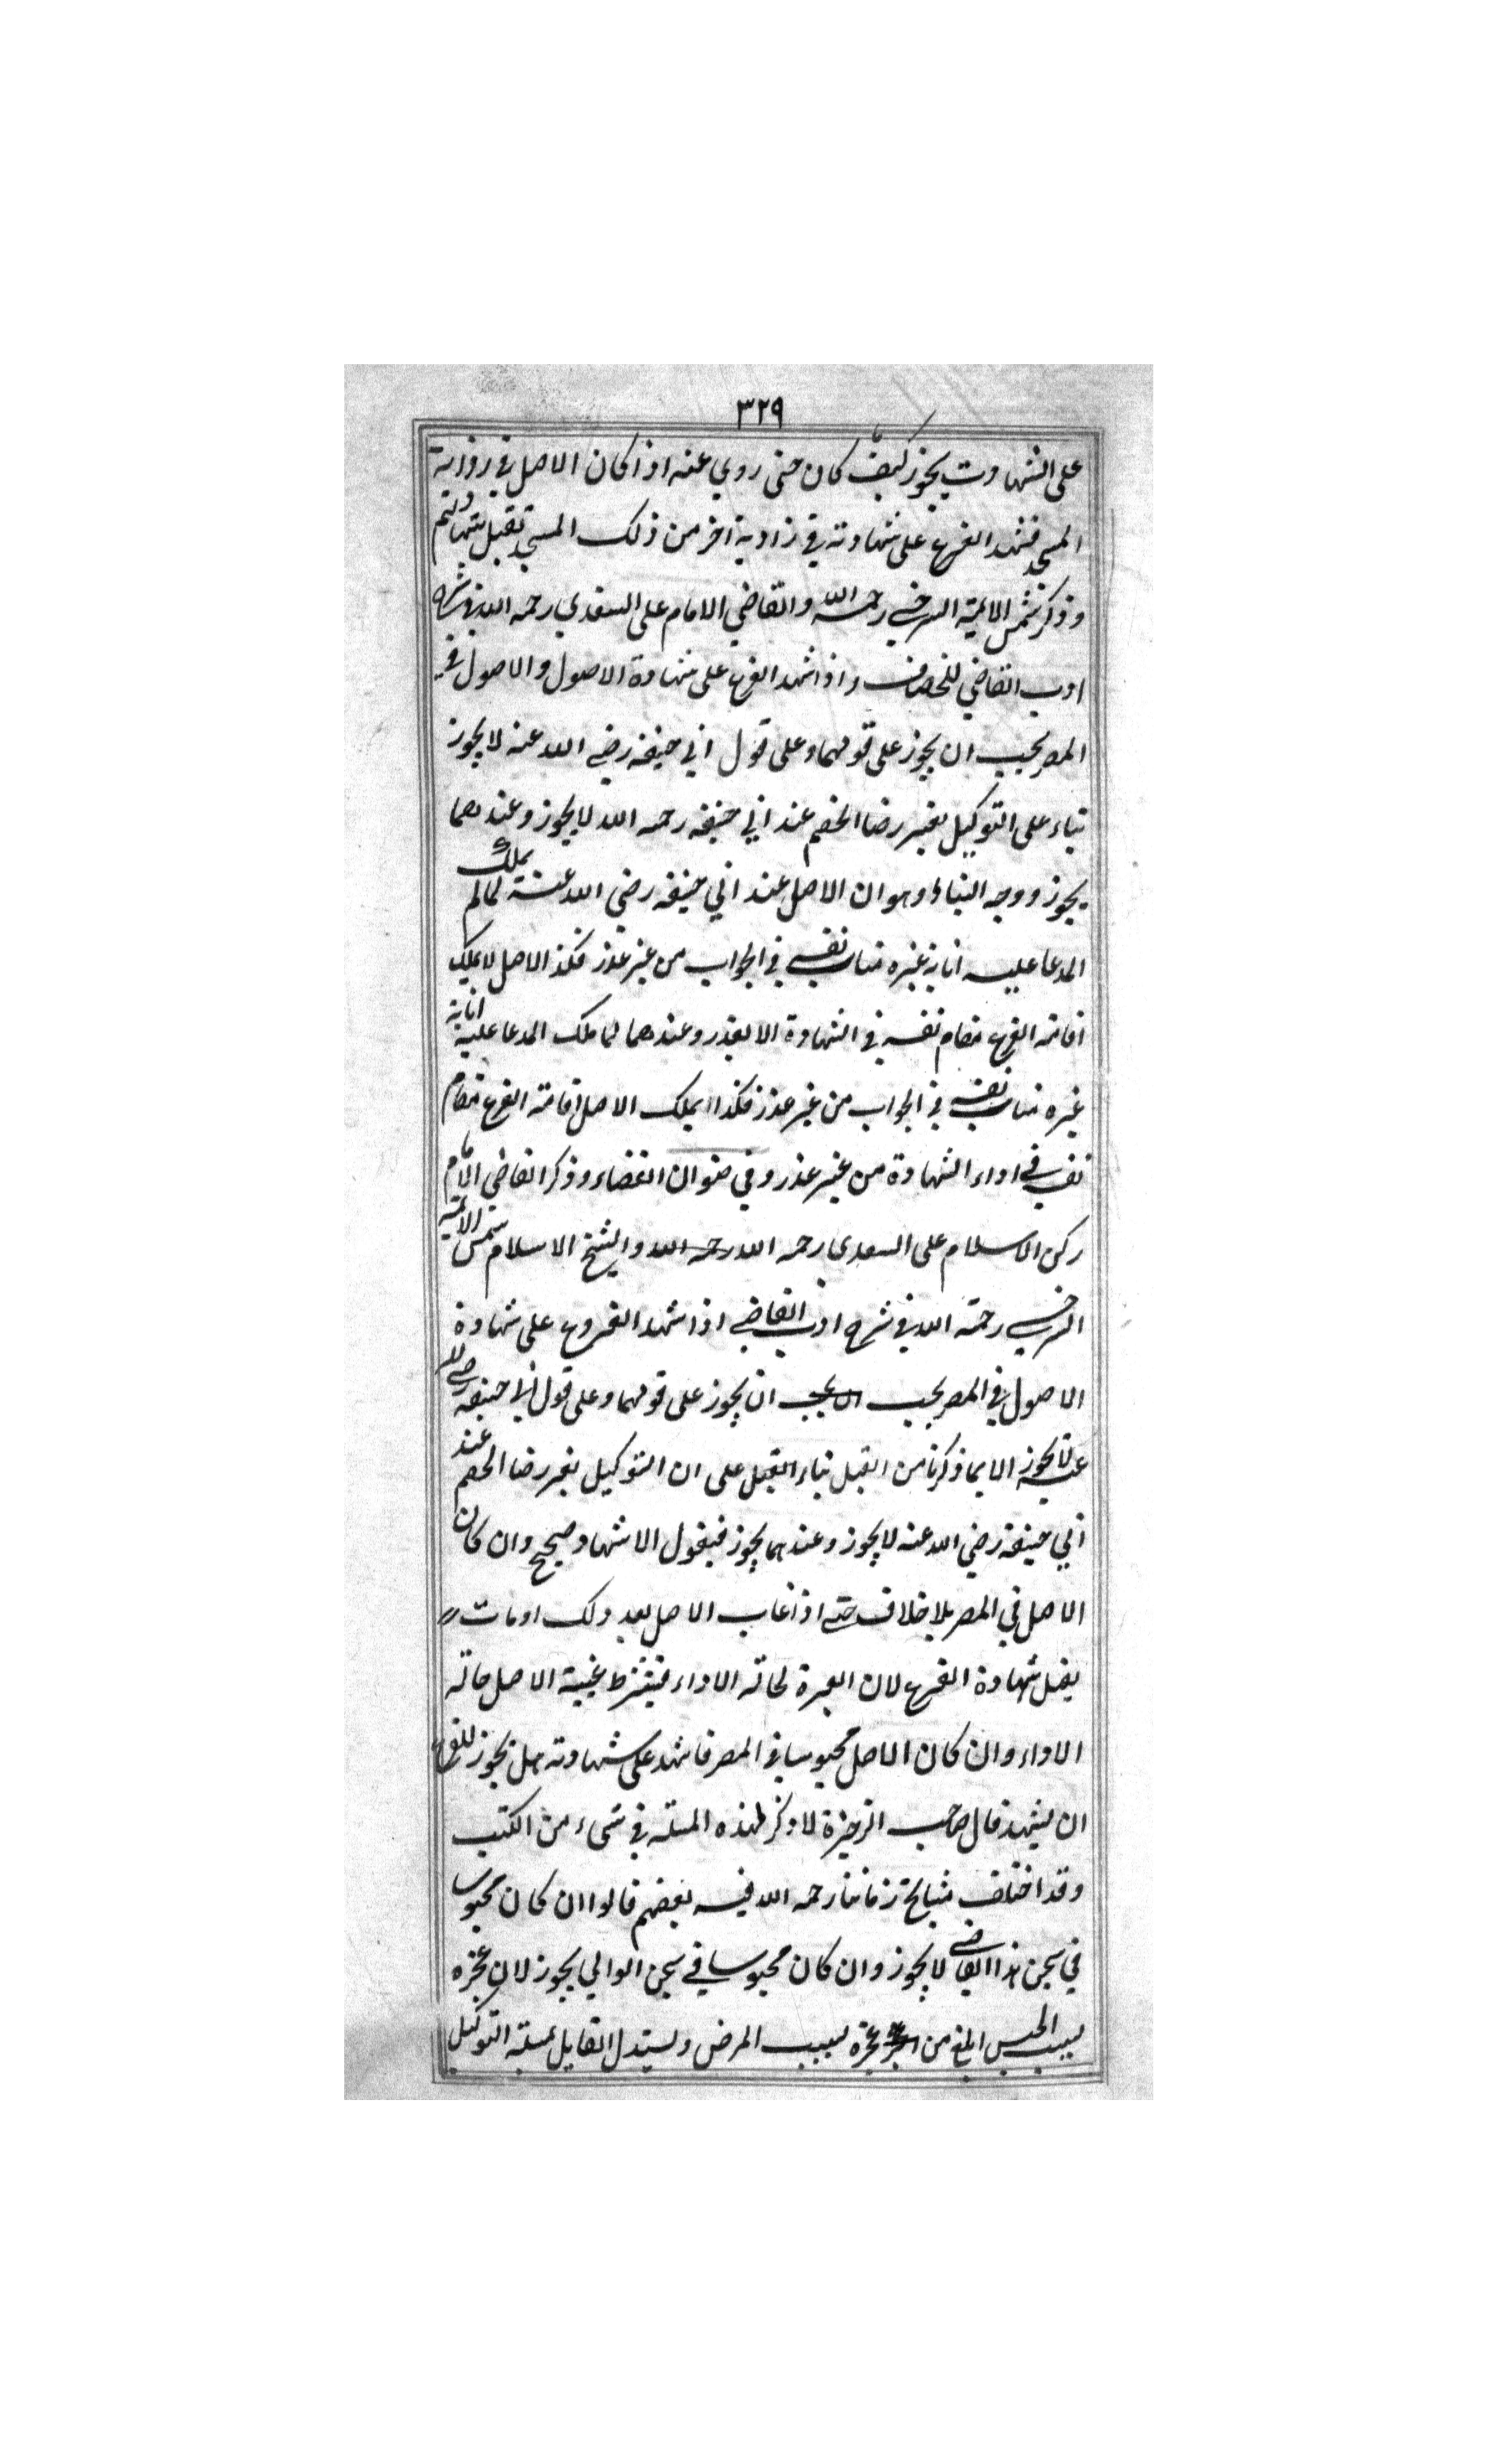 ٣٢٩
على الشهادت يجوز كيف ما كان حتى روي عنه اذا كان الاصل في زواية
المسجد فشهد الفرع على شهادته في زاوية اخر من ذلك المسجد تقبل شهادتهم
وذكر شمس الايمة السرخسي رحمه الله والقاضي الامام على السغدي رحمه الله في شرح
ادب القاضي للخصاف واذا شهد الفرع على شهادة الاصول والاصول في
المصر يجب ان يجوز على قولهما وعلى قول ابي حنيفه رضي الله عنه لا يجوز
بناء على التوكيل بغير رضا الخصم عند ابي حنيفه رحمه الله لا يجوز وعندهما
يجوز ووجه البناء وهو ان الاصل عند ابي حنيفه رضي الله عنه لما لم يملك
المدعا عليه انابة غيره مناب نفسه في الجواب من غير عذر فكذ الاصل لا يملك
اقامة الفرع مقام نفسه في الشهادة الا بعذر وعندهما لما ملك المدعا عليه انابة
غيره مناب نفسه في الجواب من غير عذر فكذا يملك الاصل اقامة الفرع مقام
نفسه في اداء الشهادة من غير عذر وفي صنوان القضاء وذكر القاضي الامام
ركن الاسلام على السعدى رحمه الله رحمه الله والشيخ الاسلام شمس الايمة
السرخسي رحمة الله في شرح ادب القاضي اذا شهد الفروع على شهادة
الاصول في المصر يجب ان يجوز على قولهما وعلى قول ابي حنيفه رضي الله
عنه لا يجوز الا بما ذكرنا من القبل بناء القبل على ان التوكيل بغير رضا الخصم عند
ابي حنيفة رضي الله عنه لا يجوز وعندهما يجوز فيقول الاشهاد صحيح وان كان
الاصل في المصر بلا خلاف حتى اذا غاب الاصل بعد ذلك او مات
يقبل شهادة الفرع لان العبرة لحالة الاداء فيشترط غيبة الاصل حالة
الاداء وان كان الاصل محبوسا في المصر فاشهد على شهادته هل يجوز للفرع
ان يشهد قال صاحب الزخيرة لا ذكر لهذه المسئلة في شىء من الكتب
وقد اختلف مشايخ زماننا رحمه الله فيه بعضهم قالوا ان كان محبوسا
في سجن هذا القاضي لا يجوز وان كان محبوسا في سجن الوالي يجوز لان عجزه
بسبب الحبس ابلغ من عجزه بسبب المرض ويستدل القايل بمسئلة التوكيل